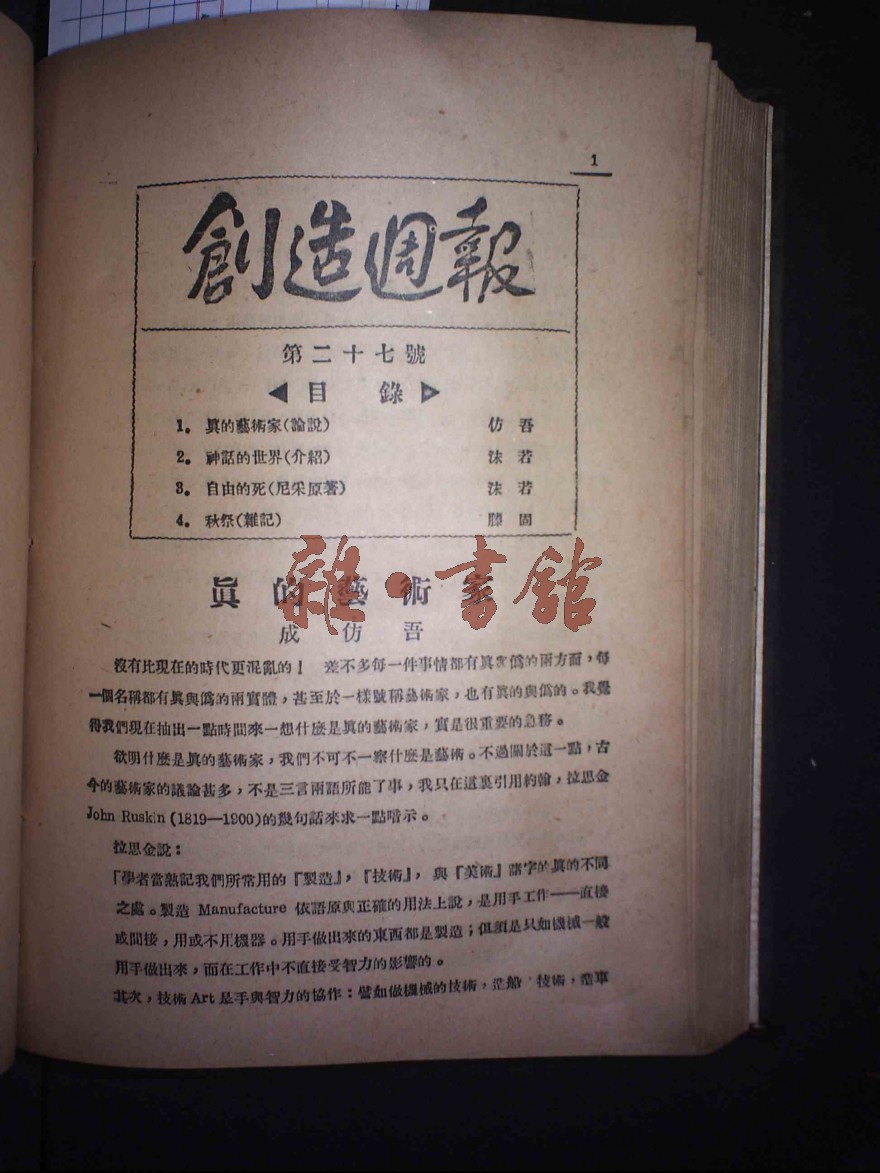 1
創造週報
第二十七號
◀目 錄▶
1。 眞的藝術家(論說) 仿 吾
2。 神話的世界(介紹) 沫 若
3。 自由的死(尼采原著) 沫 若
4。 秋祭(雜記) 滕 固
眞的藝術家
雜·書館
成 仿 吾
沒有比現在的時代更混亂的! 差不多每一件事情都有眞與僞的兩方面,每
一個名稱都有眞與僞的兩實體,甚至於一樣號稱藝術家,也有眞的與僞的。我覺
得我們現在抽出一點時間來一想什麼是眞的藝術家,實是很重要的急務。
欲明什麼是眞的藝術家,我們不可不一察什麼是藝術。不過關於這一點,古
今的藝術家的議論甚多,不是三言兩語所能了事,我只在這裏引用約翰,拉思金
John Ruskin (1819—1900)的幾句話來求一點暗示。
拉思金說:
「學者當熟記我們所常用的『製造』,『技術』, 與『美術』諸字的眞的不同
之處。製造 Manufacture 依語原與正確的用法上說,是用手工作——直接
或間接,用或不用機器。用手做出來的東西都是製造;但須是只如機械一般
用手做出來,而在工作中不直接受智力的影響的。
其次,技術 Art 是手與智力的協作:譬如做機械的技術,造船 技術,造車